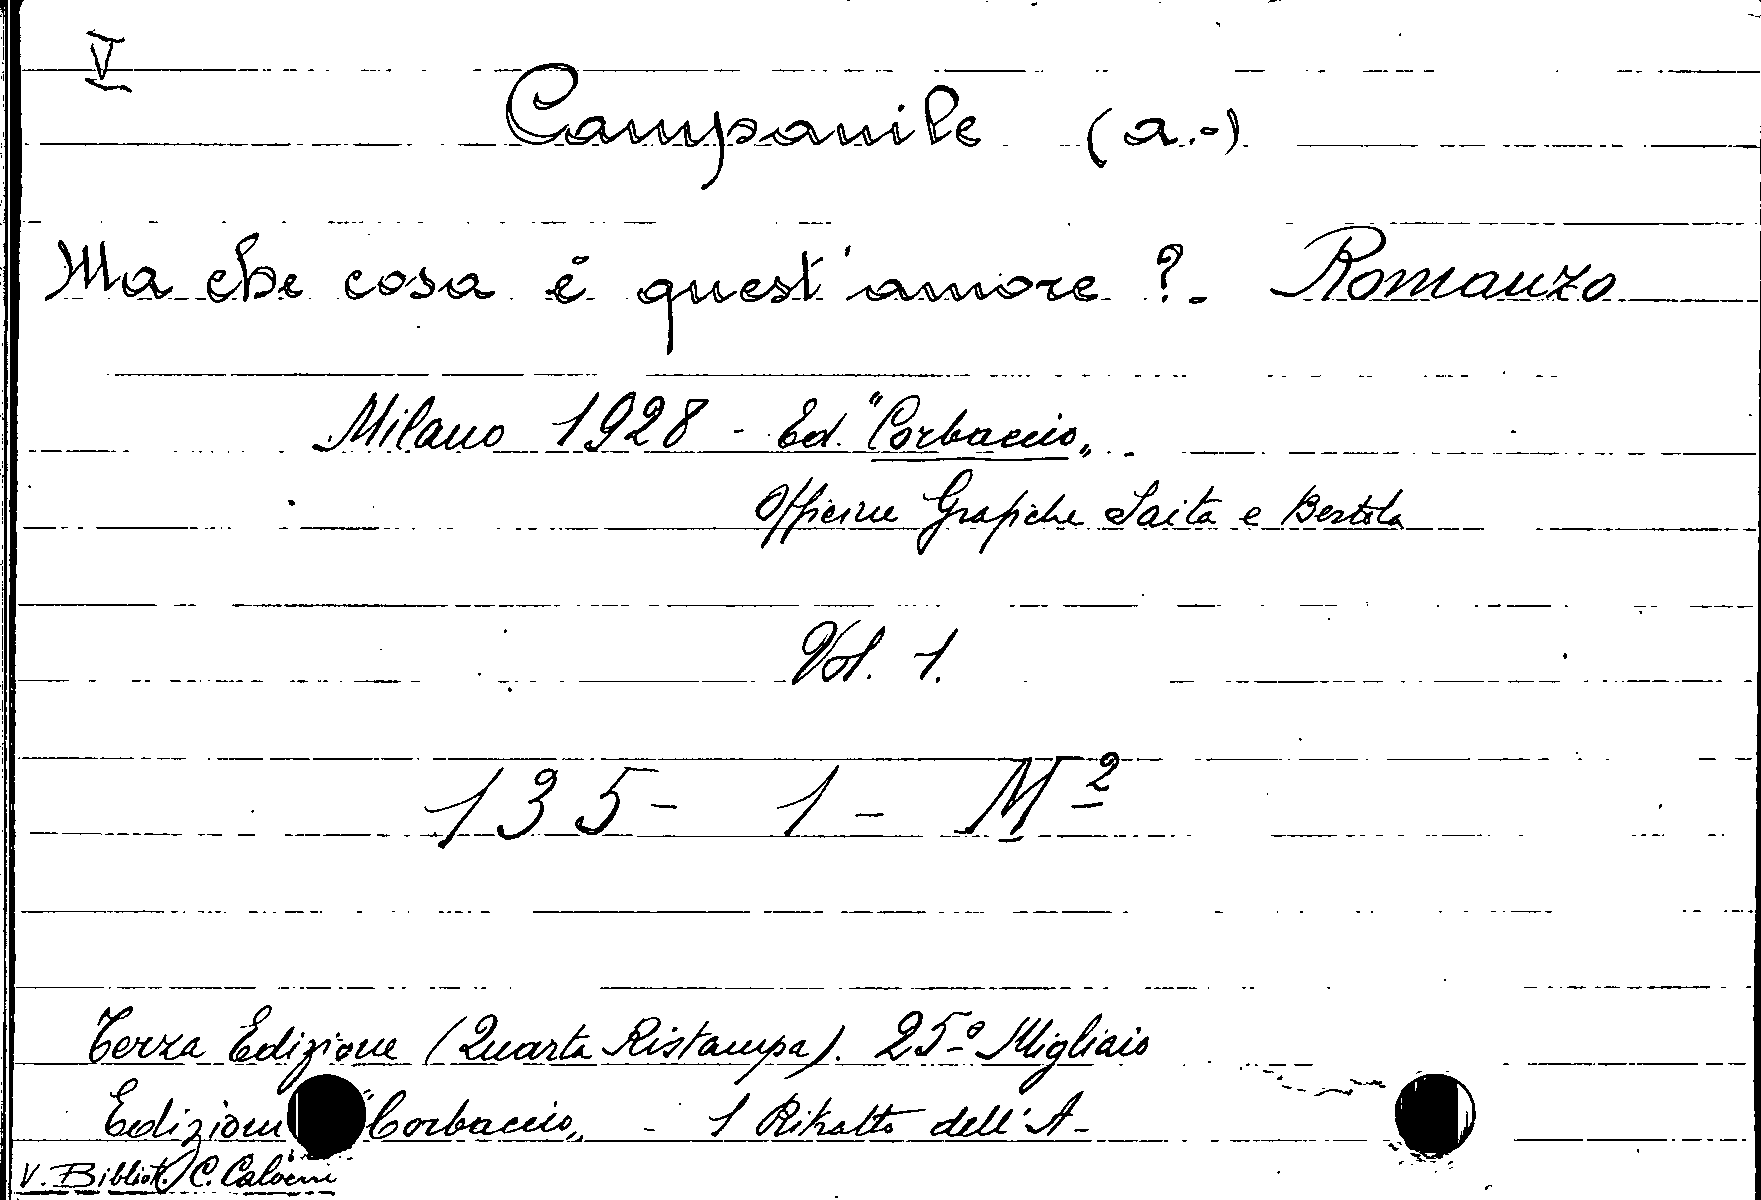 V
Campanile (a.-)
Ma che cosa è quest'amore ?. Romanzo
Milano 1928 - Ed. "Corbaccio„.
Officine Grafiche Saita e Bertola
Vol. 1.
135- 1 - M2
Terza Edizione (Quarta Ristampa). 25º Migliaio
Edizioni "Corbaccio„ - 1 Ritratto dell'A-
V. Bibliot. C.